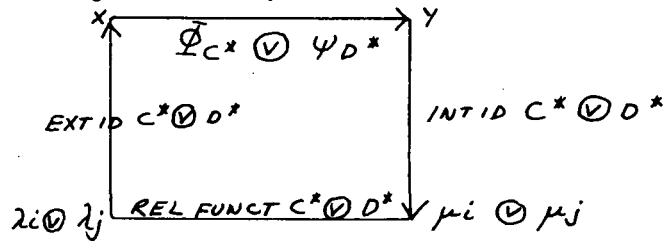 X Y
Φ_C* ⓥ Ψ_D*
EXT ID C* ⓥ D* INT ID C* ⓥ D*
λi ⓥ λj REL FUNCT C* ⓥ D* μi ⓥ μj